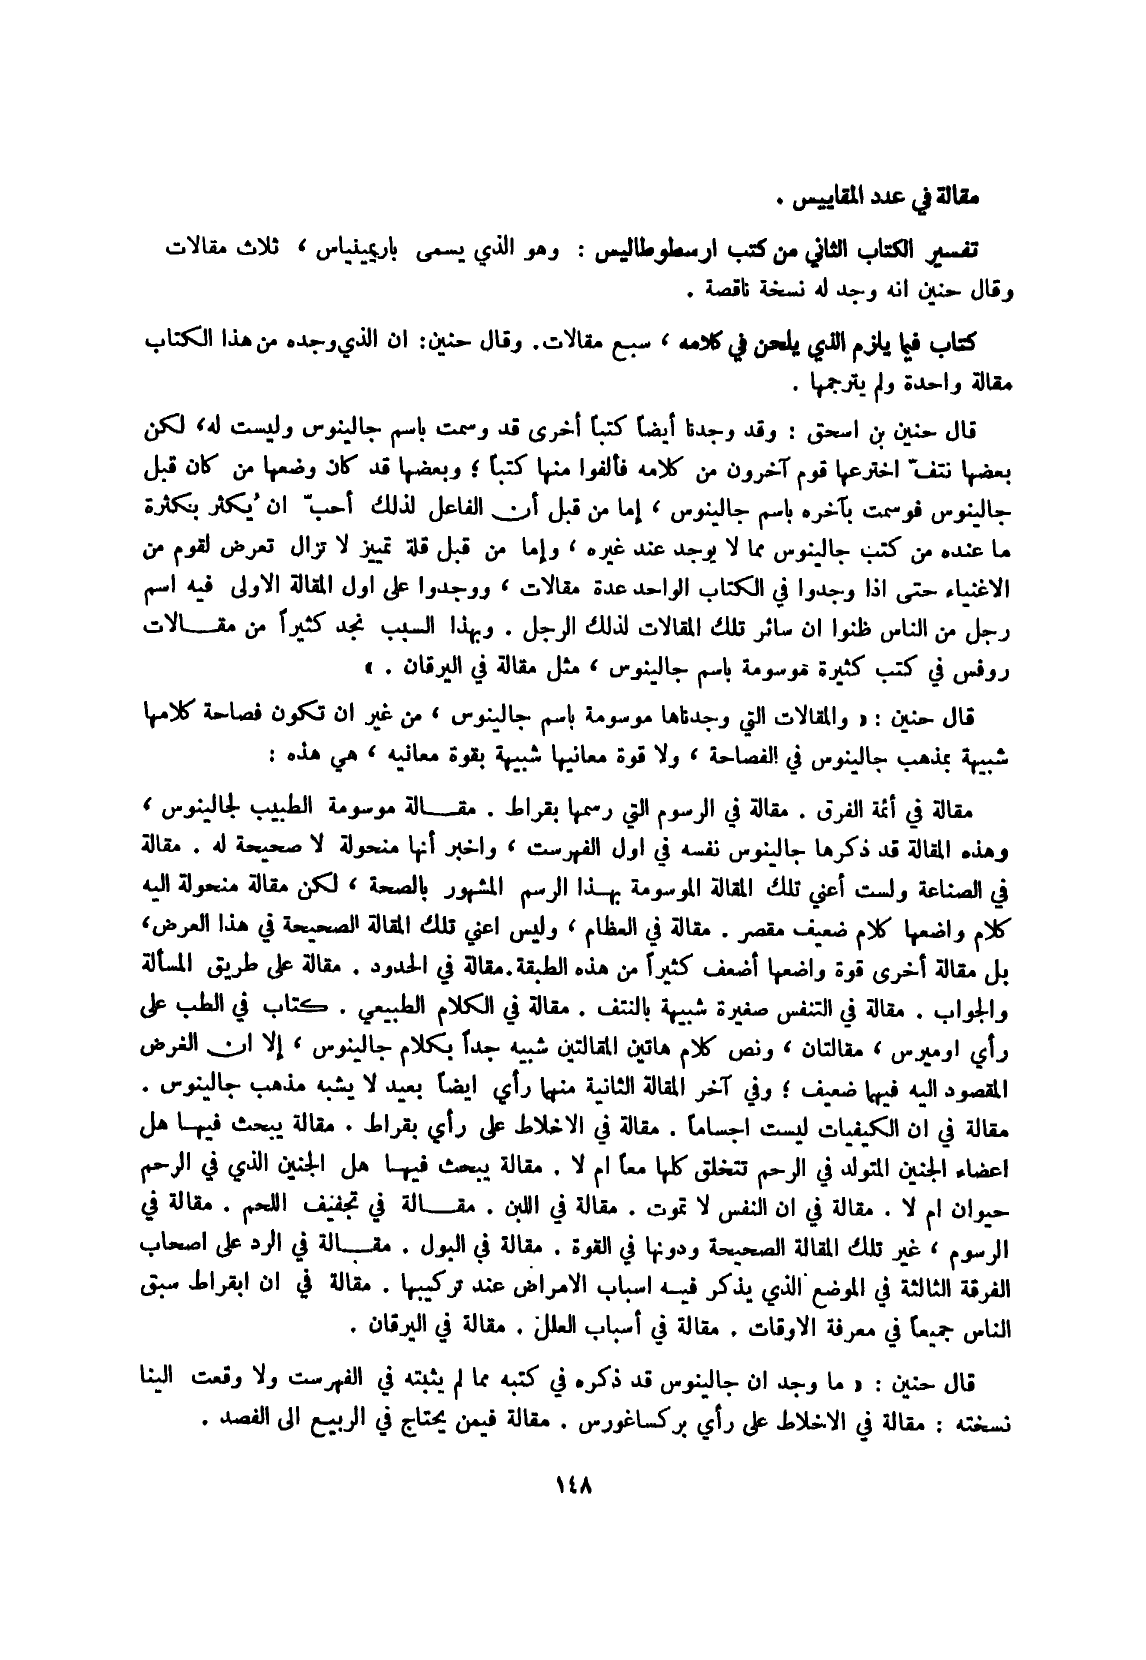 مقالة في عدد المقاييس .
تفسير الكتاب الثاني من كتب ارسطوطاليس : وهو الذي يسمى باريمينياس ، ثلاث مقالات
وقال حنين انه وجد له نسخة ناقصة .
كتاب فيما يلزم الذي يلحن في كلامه ، سبع مقالات. وقال حنين: ان الذي وجده من هذا الكتاب
مقالة واحدة ولم يترجمها .
قال حنين بن اسحق : وقد وجدنا أيضاً كتباً أخرى قد وسمت باسم جالينوس وليست له، لكن
بعضها نتفّ اخترعها قوم آخرون من كلامه فألفوا منها كتباً ؛ وبعضها قد كان وضعها من كان قبل
جالينوس فوسمت بآخره باسم جالينوس ، إما من قبل أن الفاعل لذلك أحبّ ان يُكثر بكثرة
ما عنده من كتب جالينوس مما لا يوجد عند غيره ، وإما من قبل قلة تمييز لا تزال تعرض لقوم من
الاغنياء حتى اذا وجدوا في الكتاب الواحد عدة مقالات ، ووجدوا على اول المقالة الاولى فيه اسم
رجل من الناس ظنوا ان سائر تلك المقالات لذلك الرجل . وبهذا السبب نجد كثيراً من مقالات
روفس في كتب كثيرة موسومة باسم جالينوس ، مثل مقالة في اليرقان . »
قال حنين : « والمقالات التي وجدناها موسومة باسم جالينوس ، من غير ان تكون فصاحة كلامها
شبيهة بمذهب جالينوس في الفصاحة ، ولا قوة معانيها شبيهة بقوة معانيه ، هي هذه :
مقالة في أئمة الفرق . مقالة في الرسوم التي رسمها بقراط . مقالة موسومة الطبيب لجالينوس ،
وهذه المقالة قد ذكرها جالينوس نفسه في اول الفهرست ، واخبر أنها منحولة لا صحيحة له . مقالة
في الصناعة ولست أعني تلك المقالة الموسومة بهذا الرسم المشهور بالصحة ، لكن مقالة منحولة اليه
كلام واضعها كلام ضعيف مقصر . مقالة في العظام ، وليس اعني تلك المقالة الصحيحة في هذا العرض،
بل مقالة أخرى قوة واضعها أضعف كثيراً من هذه الطبقة. مقالة في الحدود . مقالة على طريق المسألة
والجواب . مقالة في التنفس صغيرة شبيهة بالنتف . مقالة في الكلام الطبيعي . كتاب في الطب على
رأي اوميرس ، مقالتان ، ونص كلام هاتين المقالتين شبيه جداً بكلام جالينوس ، إلا ان الغرض
المقصود اليه فيها ضعيف ؛ وفي آخر المقالة الثانية منها رأي ايضاً بعيد لا يشبه مذهب جالينوس .
مقالة في ان الكيفيات ليست اجساماً . مقالة في الاخلاط على رأي بقراط . مقالة يبحث فيها هل
اعضاء الجنين المتولد في الرحم تتخلق كلها معاً ام لا . مقالة يبحث فيها هل الجنين الذي في الرحم
حيوان ام لا . مقالة في ان النفس لا تموت . مقالة في اللبن . مقالة في تجفيف اللحم . مقالة في
الرسوم ، غير تلك المقالة الصحيحة ودونها في القوة . مقالة في البول . مقالة في الرد على اصحاب
الفرقة الثالثة في الموضع الذي يذكر فيه اسباب الامراض عند تركيبها . مقالة في ان ابقراط سبق
الناس جميعاً في معرفة الاوقات . مقالة في أسباب العلل . مقالة في اليرقان .
قال حنين : « ما وجد ان جالينوس قد ذكره في كتبه مما لم يثبته في الفهرست ولا وقعت الينا
نسخته : مقالة في الاخلاط على رأي بركساغورس . مقالة فيمن يحتاج في الربيع الى الفصد .
١٤٨